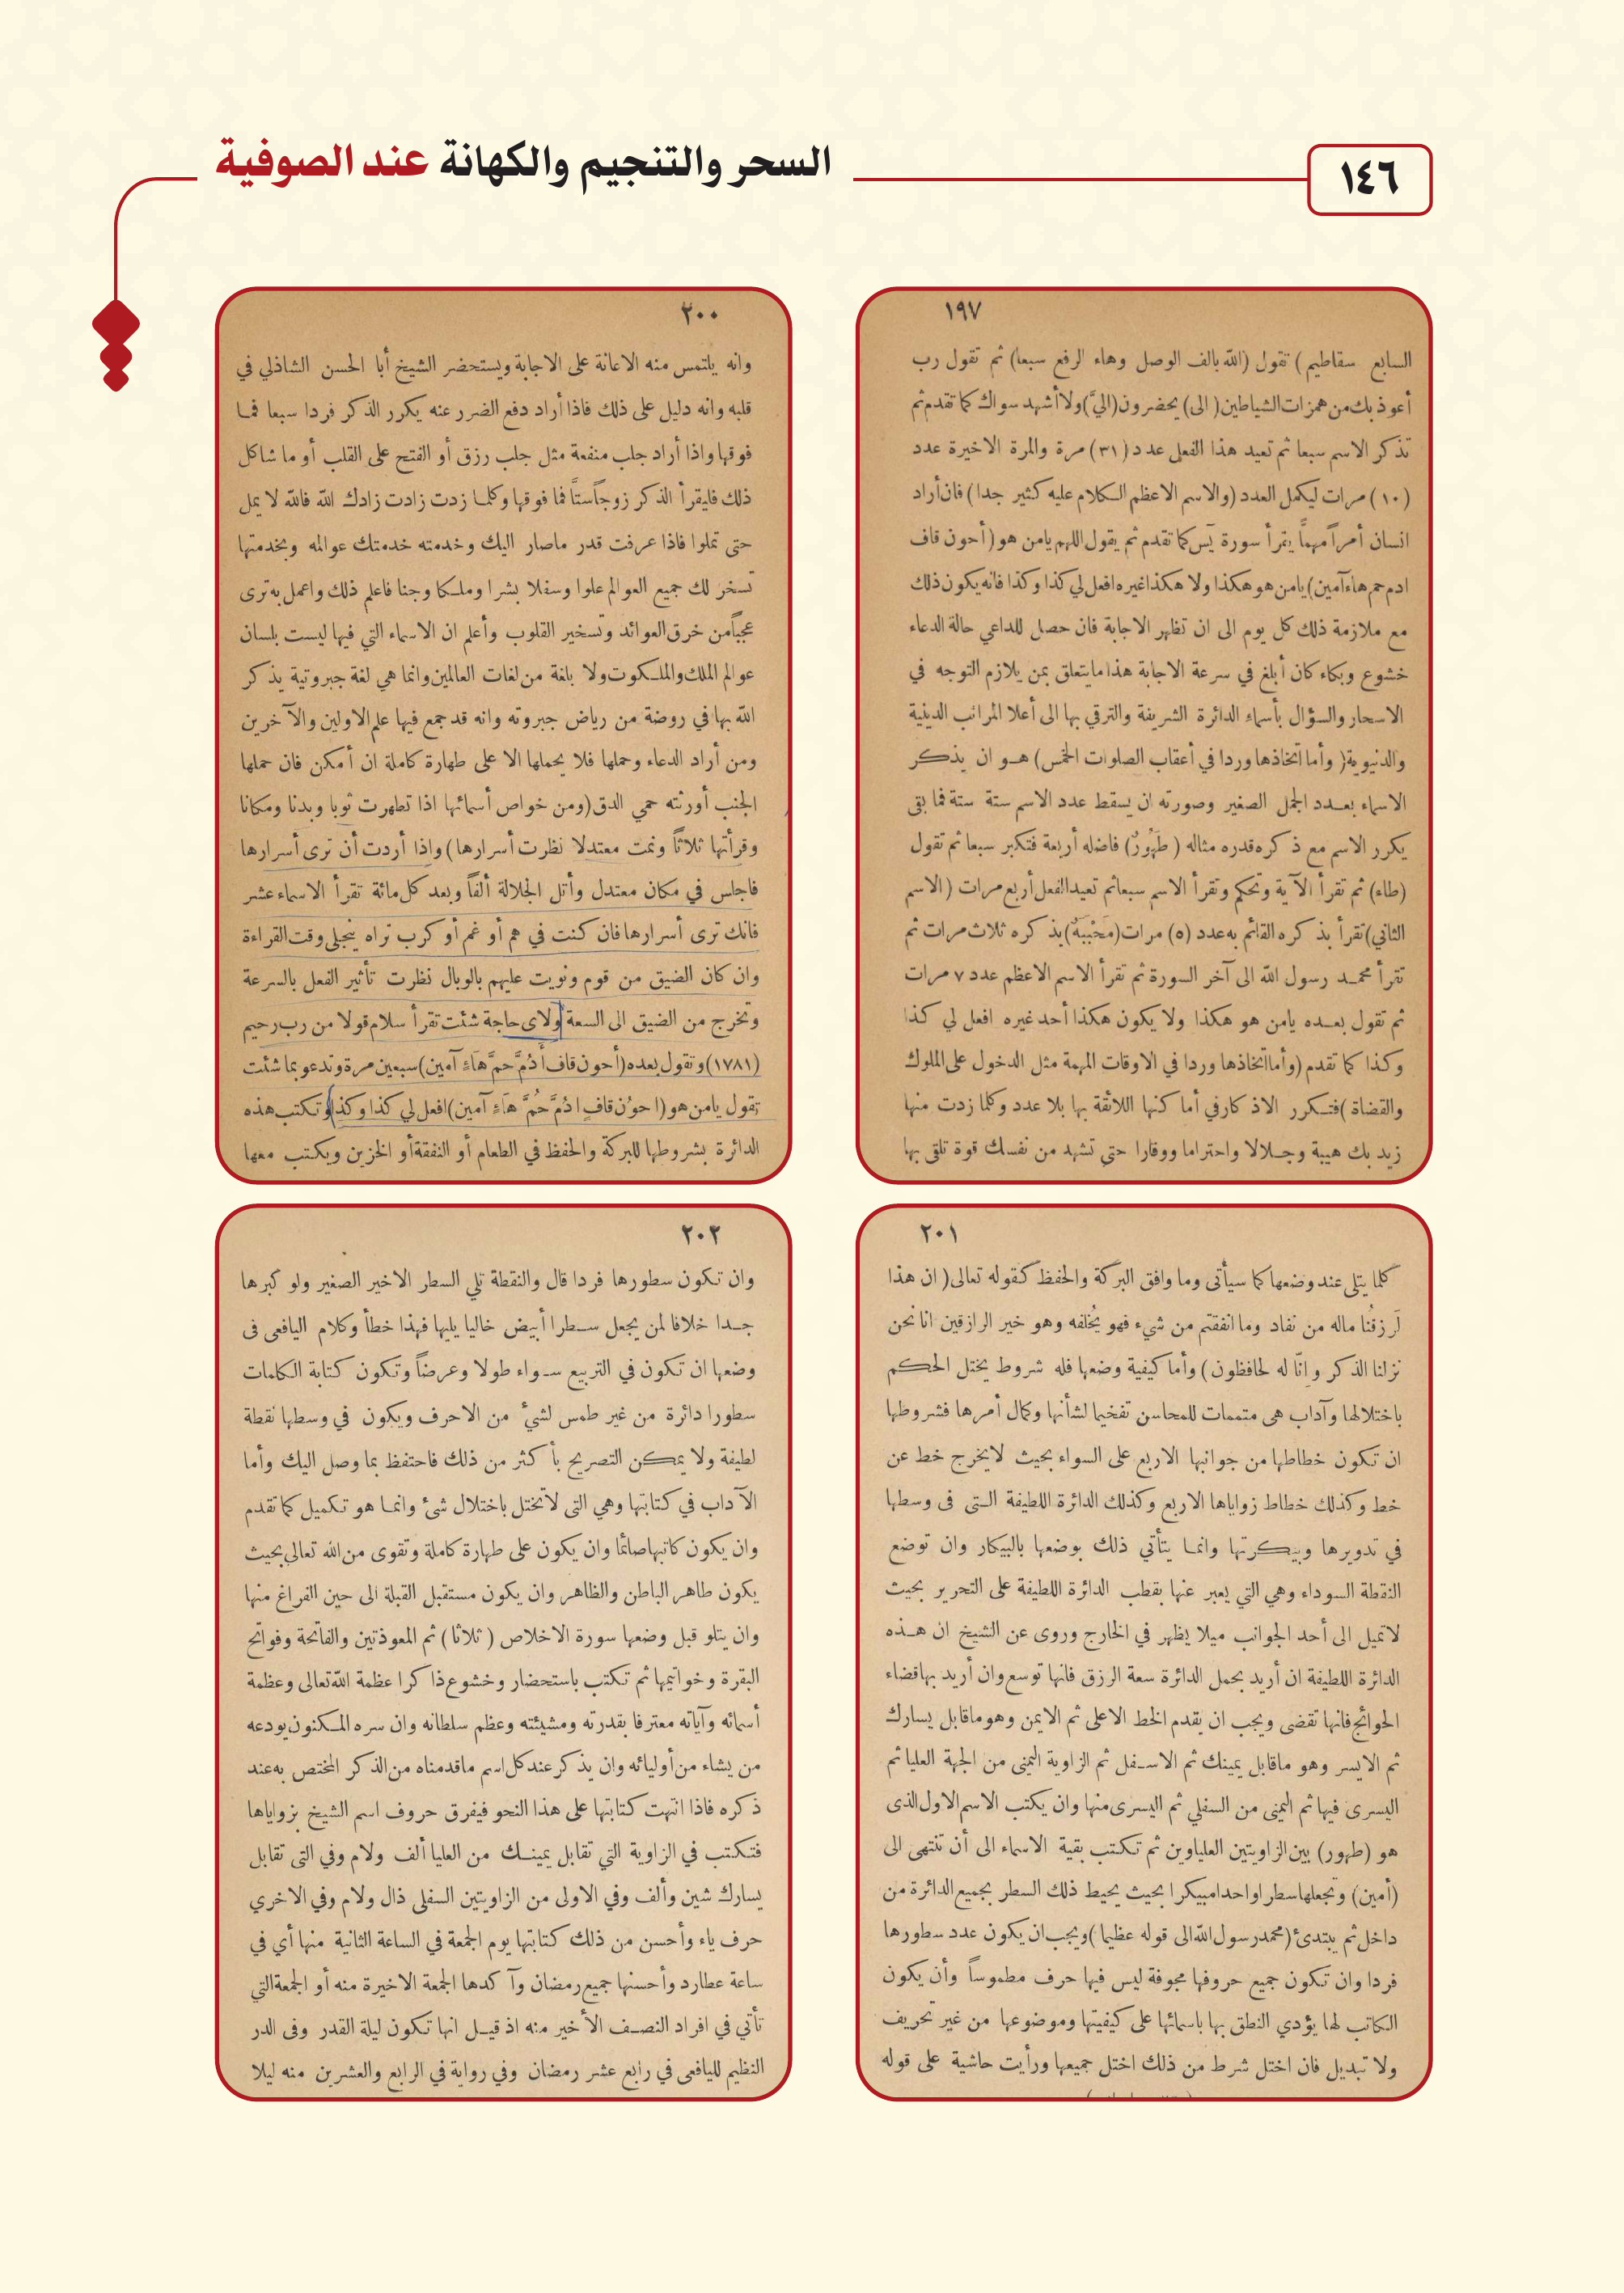 ١٤٦
السحر والتنجيم والكهانة عند الصوفية
١٩٧
السابع سقاطيم) تقول (الله بالف الوصل وهاء الرفع سبعا) ثم تقول رب
أعوذ بك من همزات الشياطين (الى) يحضرون (اليّ) ولا أشهد سواك كما تقدم ثم
تذكر الاسم سبعا ثم تعيد هذا الفعل عدد (٣١) مرة والمرة الاخيرة عدد
(١٠) مرات ليكمل العدد (والاسم الاعظم الكلام عليه كثير جدا) فان أراد
انسان أمراً مهماً يقرأ سورة يَس كما تقدم ثم يقول اللهم يامن هو (أحون قاف
ادم حم هاء آمين) يامن هو هكذا ولا هكذا غيره افعل لي كذا وكذا فانه يكون ذلك
مع ملازمة ذلك كل يوم الى ان تظهر الاجابة فان حصل للداعي حالة الدعاء
خشوع وبكاء كان أبلغ في سرعة الاجابة هذا مايتعلق بمن يلازم التوجه في
الاسحار والسؤال بأسماء الدائرة الشريفة والترقي بها الى أعلا المراتب الدينية
والدنيوية (وأما اتخاذها وردا في أعقاب الصلوات الخمس) هو ان يذكر
الاسماء بعدد الجمل الصغير وصورته ان يسقط عدد الاسم ستة ستة فما بقى
يكرر الاسم مع ذكره قدره مثاله (طَهُورٌ) فاضله أربعة فتكبر سبعا ثم تقول
(طاء) ثم تقرأ الآية وتحكم وتقرأ الاسم سبعا ثم تعيد الفعل أربع مرات (الاسم
الثاني) تقرأ بذكره القائم به عدد (٥) مرات (مَحْبَبَهٌ) بذكره ثلاث مرات ثم
تقرأ محمد رسول الله الى آخر السورة ثم تقرأ الاسم الاعظم عدد ٧ مرات
ثم تقول بعده يامن هو هكذا ولا يكون هكذا أحد غيره افعل لي كذا
وكذا كما تقدم (وأما اتخاذها وردا في الاوقات المهمة مثل الدخول على الملوك
والقضاة) فتكرر الاذكار في أماكنها اللائقة بها بلا عدد وكلما زدت منها
زيد بك هيبة وجلالا واحتراما ووقارا حتى تشهد من نفسك قوة تلقى بها
٢٠٠
وانه يلتمس منه الاعانة على الاجابة ويستحضر الشيخ أبا الحسن الشاذلي في
قلبه وانه دليل على ذلك فاذا أراد دفع الضرر عنه يكرر الذكر فردا سبعا فما
فوقها واذا أراد جلب منفعة مثل جلب رزق أو الفتح على القلب أو ما شاكل
ذلك فليقرأ الذكر زوجاً ستاً فما فوقها وكلما زدت زادت زادك الله فالله لا يمل
حتى تملوا فاذا عرفت قدر ماصار اليك وخدمته خدمتك عوالمه وبخدمتها
تسخر لك جميع العوالم علوا وسفلا بشرا وملكا وجنا فاعلم ذلك واعمل به ترى
عجباً من خرق العوائد وتسخير القلوب وأعلم ان الاسماء التي فيها ليست بلسان
عوالم الملك والملكوت ولا بلغة من لغات العالمين وانما هي لغة جبروتية يذكر
الله بها في روضة من رياض جبروته وانه قد جمع فيها علم الاولين والآخرين
ومن أراد الدعاء وحملها فلا يحملها الا على طهارة كاملة ان أمكن فان حملها
الجنب أورثته حمي الدق (ومن خواص أسمائها اذا تطهرت ثوبا وبدنا ومكانا
وقرأتها ثلاثاً ونمت معتدلا نظرت أسرارها) واذا أردت أن ترى أسرارها
فاجلس في مكان معتدل وأتل الجلالة ألفاً وبعد كل مائة تقرأ الاسماء عشر
فانك ترى أسرارها فان كنت في هم أو غم أو كرب تراه ينجلي وقت القراءة
وان كان الضيق من قوم ونويت عليهم بالوبال نظرت تأثير الفعل بالسرعة
وتخرج من الضيق الى السعة ولاى حاجة شئت تقرأ سلام قولا من رب رحيم
(١٧٨١) وتقول بعده (أحون قاف أَدُمَّ حَمَّ هَاءٍ آمين) سبعين مرة وتدعو بما شئت
تقول يامن هو (احوُن قافٍ ادُمَّ حُمَّ هَاءٍ آمين) افعل لي كذا وكذا وتكتب هذه
الدائرة بشروطها للبركة والحفظ في الطعام أو النفقة أو الخزين ويكتب معها
٢٠١
كلما يتلى عند وضعها كما سيأتى وما وافق البركة والحفظ كقوله تعالى (ان هذا
لَرزقُنا ماله من نفاد وما انفقتم من شيء فهو يُخلفه وهو خير الرازقين انا نحن
نزلنا الذكر وإنّا له لحافظون) وأما كيفية وضعها فله شروط يختل الحكم
باختلالها وآداب هى متممات للمحاسن تفخيما لشأنها وكمال أمرها فشروطها
ان تكون خطاطها من جوانبها الاربع على السواء بحيث لايخرج خط عن
خط وكذلك خطاط زواياها الاربع وكذلك الدائرة اللطيفة التى فى وسطها
في تدويرها وبيكرتها وانما يتأتي ذلك بوضعها بالبيكار وان توضع
النقطة السوداء وهي التي يعبر عنها بقطب الدائرة اللطيفة على التحرير بحيث
لاتميل الى أحد الجوانب ميلا يظهر في الخارج وروى عن الشيخ ان هذه
الدائرة اللطيفة ان أريد بحمل الدائرة سعة الرزق فانها توسع وان أريد بها قضاء
الحوائج فانها تقضى ويجب ان يقدم الخط الاعلى ثم الايمن وهو ماقابل يسارك
ثم الايسر وهو ماقابل يمينك ثم الاسفل ثم الزاوية اليمنى من الجهة العليا ثم
اليسرى فيها ثم اليمنى من السفلي ثم اليسرى منها وان يكتب الاسم الاول الذى
هو (طهور) بين الزاويتين العلياوين ثم تكتب بقية الاسماء الى أن تنتهى الى
(أمين) وتجعلها سطرا واحدا مبيكرا بحيث يحيط ذلك السطر بجميع الدائرة من
داخل ثم يبتدئ (محمد رسول الله الى قوله عظيما) ويجب ان يكون عدد سطورها
فردا وان تكون جميع حروفها مجوفة ليس فيها حرف مطموساً وأن يكون
الكاتب لها يؤدي النطق بها باسمائها على كيفيتها وموضوعها من غير تحريف
ولا تبديل فان اختل شرط من ذلك اختل جميعها ورأيت حاشية على قوله
٢٠٢
وان تكون سطورها فردا قال والنقطة تلي السطر الاخير الصغير ولو كبرها
جدا خلافا لمن يجعل سطرا أبيض خاليا يليها فهذا خطأ وكلام اليافعى فى
وضعها ان تكون في التربيع سواء طولا وعرضاً وتكون كتابة الكلمات
سطورا دائرة من غير طمس لشيء من الاحرف ويكون في وسطها نقطة
لطيفة ولا يمكن التصريح بأكثر من ذلك فاحتفظ بما وصل اليك وأما
الآداب في كتابتها وهي التى لاتختل باختلال شئ وانما هو تكميل كما تقدم
وان يكون كاتبها صائما وان يكون على طهارة كاملة وتقوى من الله تعالى بحيث
يكون طاهر الباطن والظاهر وان يكون مستقبل القبلة الى حين الفراغ منها
وان يتلو قبل وضعها سورة الاخلاص (ثلاثا) ثم المعوذتين والفاتحة وفواتح
البقرة وخواتيمها ثم تكتب باستحضار وخشوع ذاكرا عظمة الله تعالى وعظمة
أسمائه وآياته معترفا بقدرته ومشيئته وعظم سلطانه وان سره المكنون يودعه
من يشاء من أوليائه وان يذكر عند كل اسم ماقدمناه من الذكر المختص به عند
ذكره فاذا انتهت كتابتها على هذا النحو فيفرق حروف اسم الشيخ بزواياها
فتكتب في الزاوية التي تقابل يمينك من العليا ألف ولام وفي التى تقابل
يسارك شين وألف وفي الاولى من الزاويتين السفلى ذال ولام وفي الاخري
حرف ياء وأحسن من ذلك كتابتها يوم الجمعة في الساعة الثانية منها أي في
ساعة عطارد وأحسنها جميع رمضان وآكدها الجمعة الاخيرة منه أو الجمعة التي
تأتي في افراد النصف الأخير منه اذ قيل انها تكون ليلة القدر وفى الدر
النظيم لليافعى في رابع عشر رمضان وفي رواية في الرابع والعشرين منه ليلا